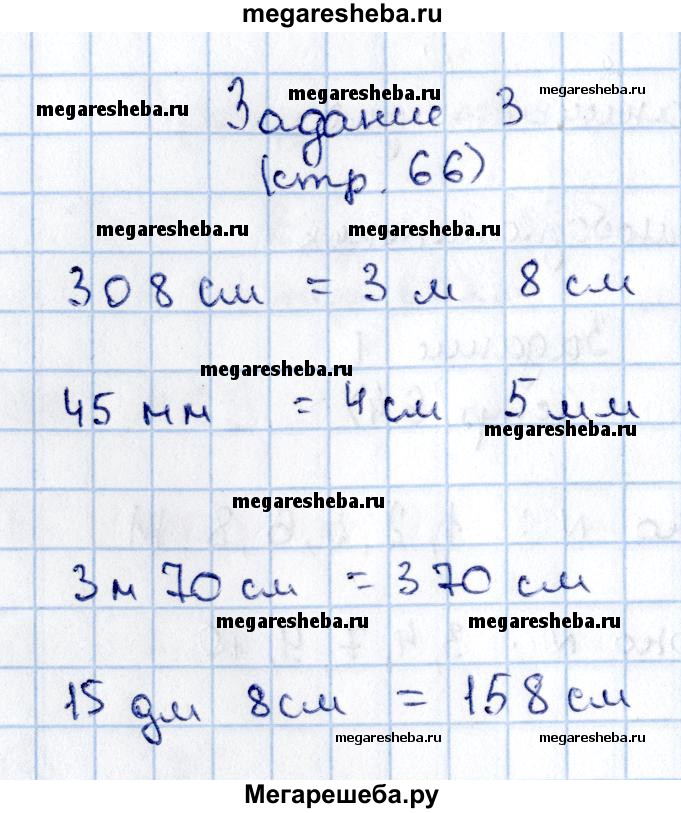 megaresheba.ru
megaresheba.ru
megaresheba.ru
megaresheba.ru
Задание 3
(стр. 66)
megaresheba.ru
megaresheba.ru
308 см = 3 м 8 см
megaresheba.ru
megaresheba.ru
45 мм = 4 см 5 мм
megaresheba.ru
megaresheba.ru
3 м 70 см = 370 см
megaresheba.ru
megaresheba.ru
15 дм 8 см = 158 см
megaresheba.ru
megaresheba.ru
Мегарешеба.ру